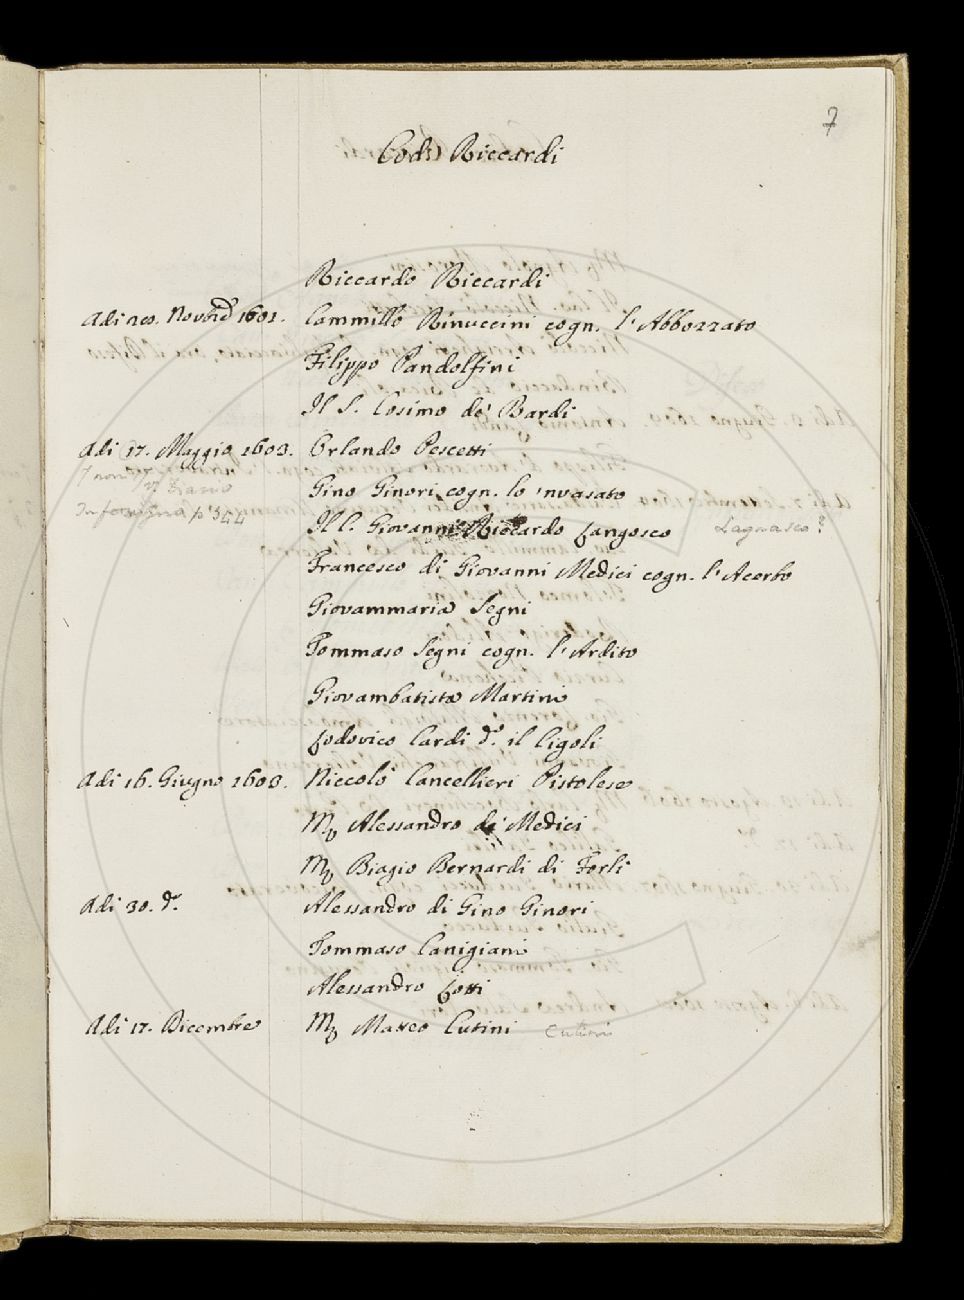 7
Codi) Riccardi
Riccardo Riccardi
Adi 20. Novbre 1601. Cammillo Rinuccini cogn. l'Abbozzato
Filippo Pandolfini
Il S. Cosimo de' Bardi
Adi 17. Maggio 1603. Orlando Pescetti
Gino Ginori cogn. lo 'nvasato
Infarigna p. 344
Il C. Giovanni Riccardo Langosco Lagnasco?
Francesco di Giovanni Medici cogn. l'Acerbo
Giovammaria Segni
Tommaso Segni cogn. l'Ardito
Giovambatista Martini
Lodovico Cardi do. il Cigoli
Adi 16. Giugno 1603. Niccolò Cancellieri Pistolese
Mr Alessandro de' Medici
Mr Biagio Bernardi di Forlì
Adi 30. do. Alessandro di Gino Ginori
Tommaso Canigiani
Alessandro Lotti
Adi 17. Dicembre Mr Matteo Cutini Cutini